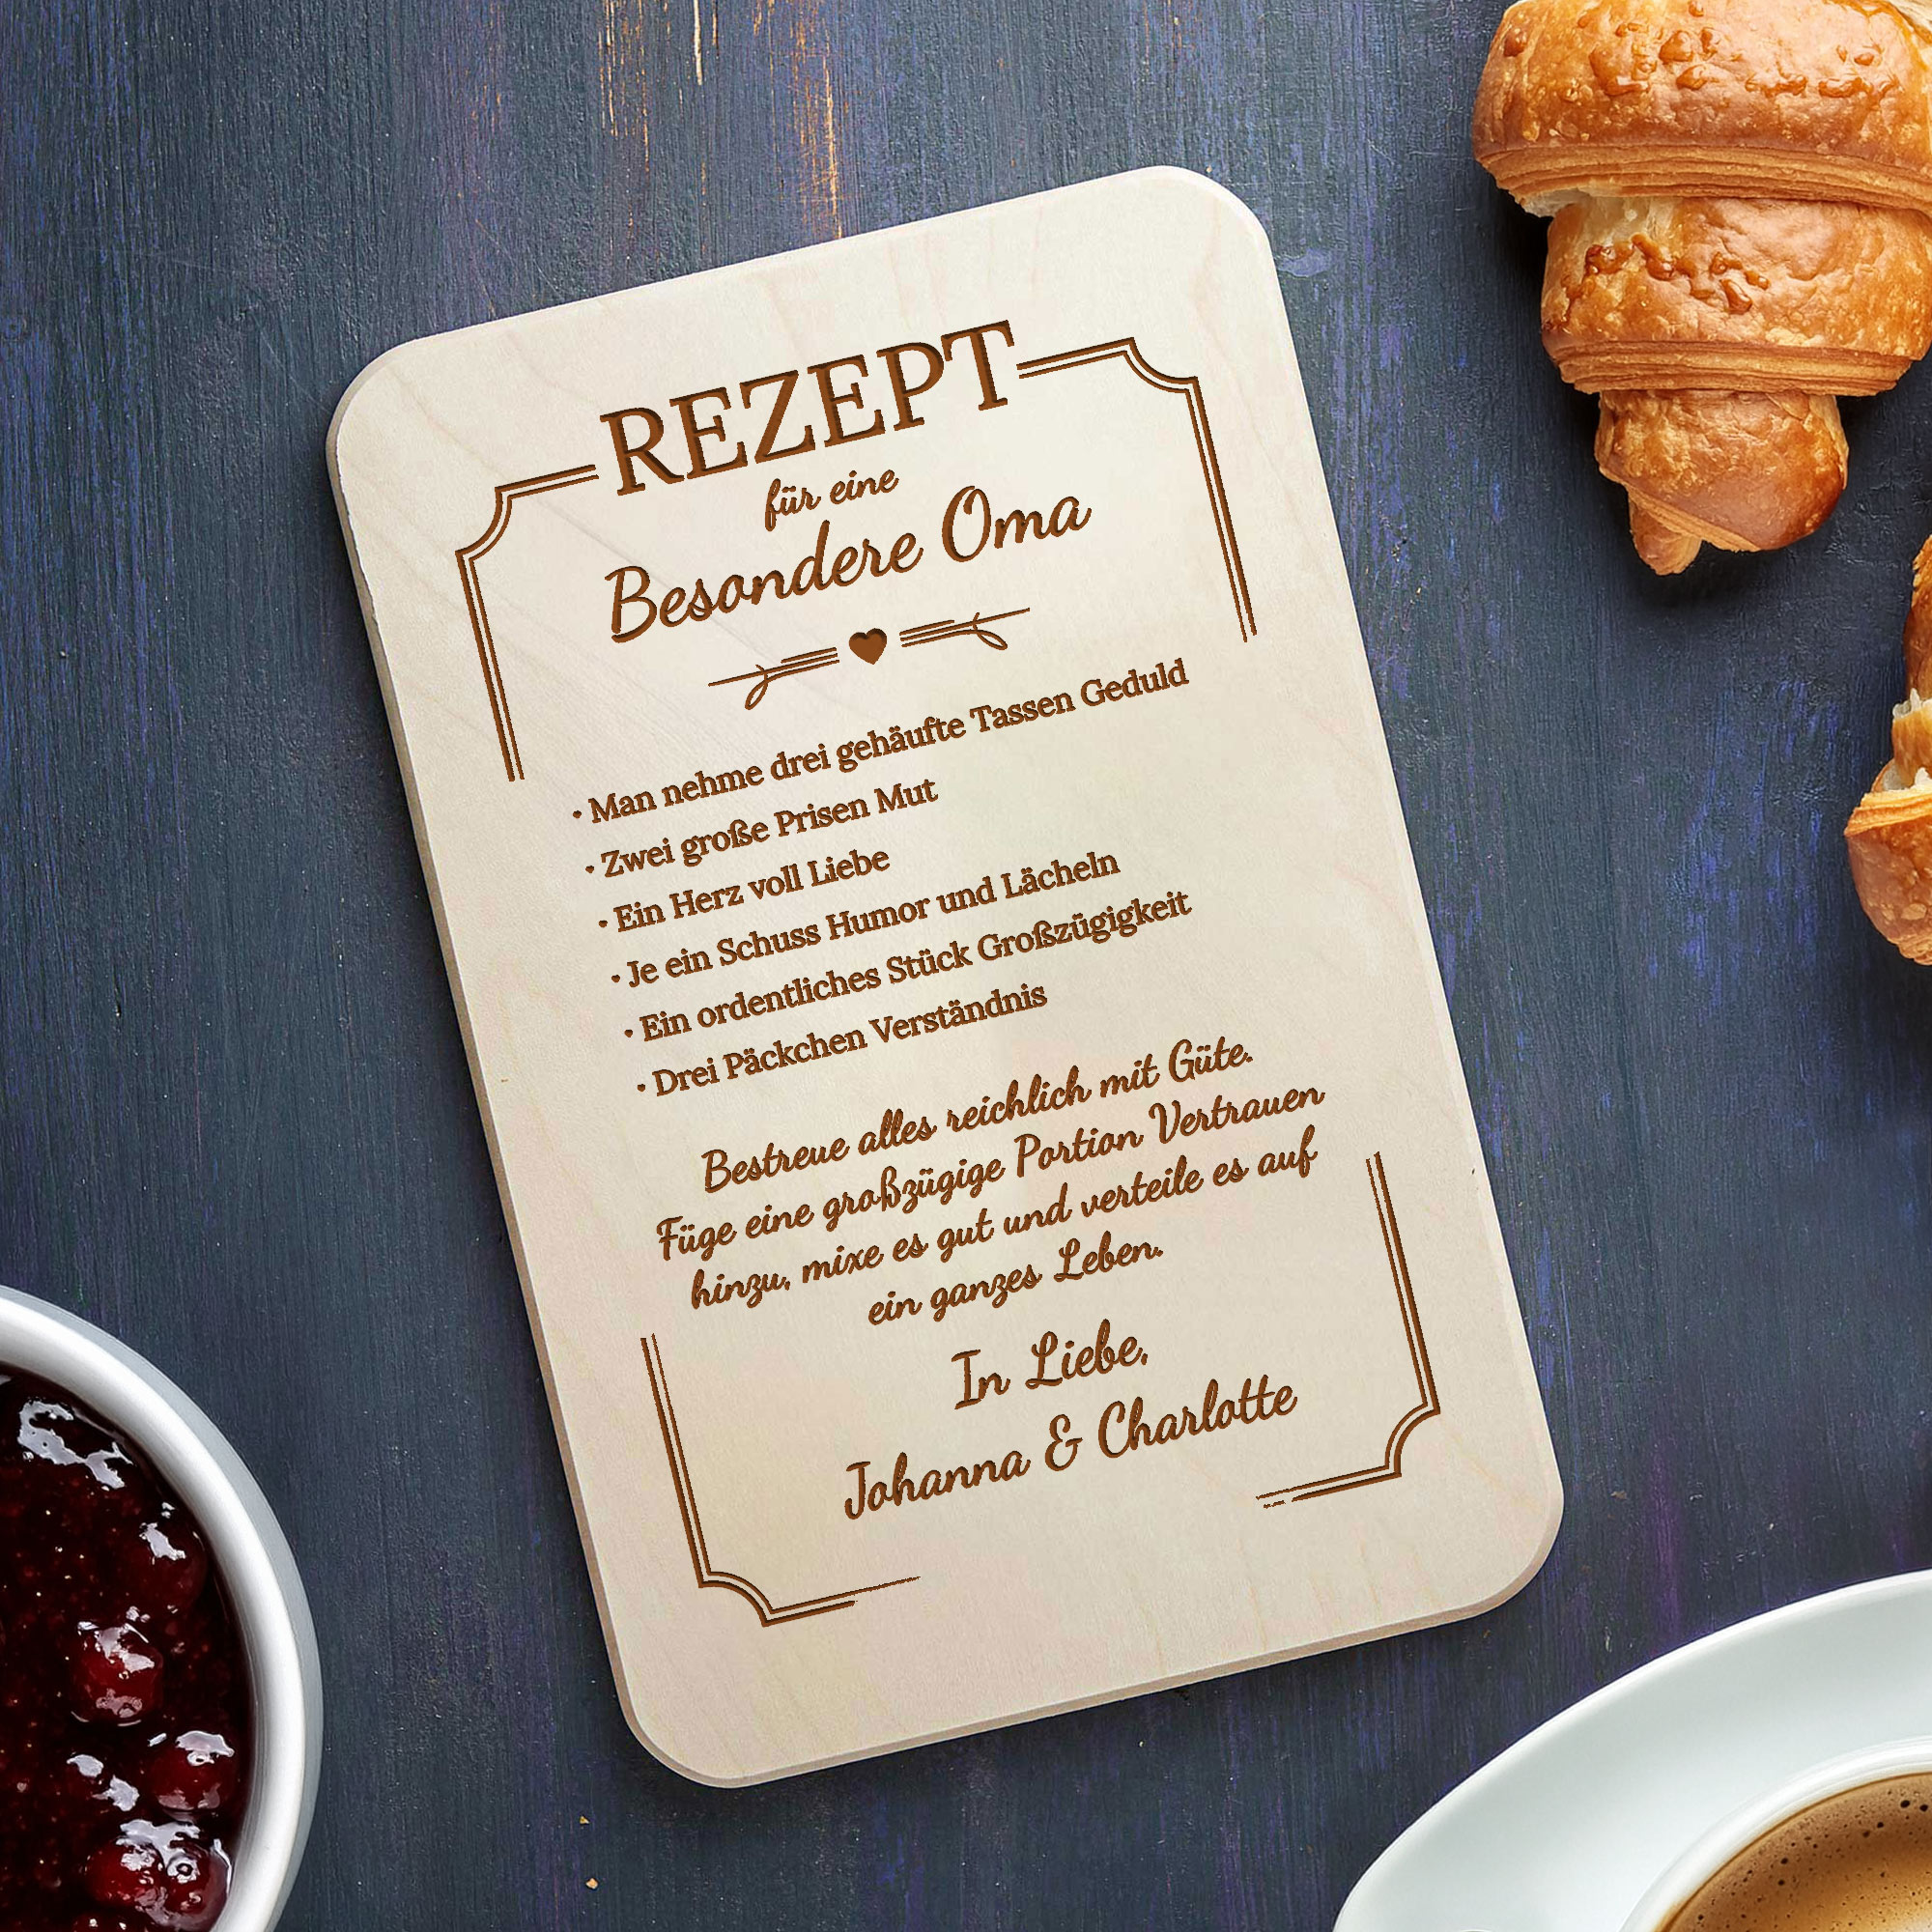 REZEPT
für eine
Besondere Oma
• Man nehme drei gehäufte Tassen Geduld
• Zwei große Prisen Mut
• Ein Herz voll Liebe
• Je ein Schuss Humor und Lächeln
• Ein ordentliches Stück Großzügigkeit
• Drei Päckchen Verständnis
Bestreue alles reichlich mit Güte.
Füge eine großzügige Portion Vertrauen
hinzu, mixe es gut und verteile es auf
ein ganzes Leben.
In Liebe,
Johanna & Charlotte